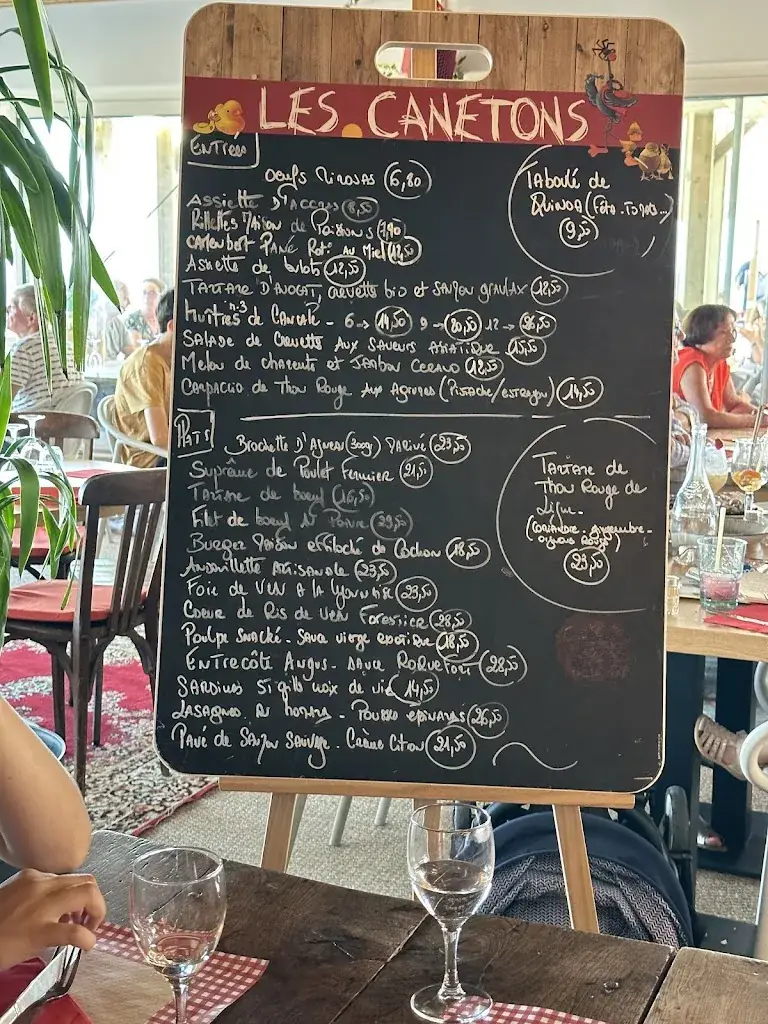 LES CANETONS
ENTREES
OEufs Mimosas 6,80
Assiette D'Accras 8,50
Rillettes Maison de Poissons 7,90
Camembert Pané Roti au Miel 12,50
Assiette de bulots 12,50
Tartare D'Avocat, crevette bio et saumon gravlax 12,50
Huitres n°3 de Cancale - 6 → 14,50 9 → 20,50 12 → 26,50
Salade de Crevette aux saveurs Asiatique 15,50
Melon de charente et Jambon Cerano 12,50
Carpaccio de Thon Rouge aux Agrumes (Pistache/estragon) 14,50
Taboulé de
Quinoa (Féta..
9,50
Plats
Brochette D'Agneau (300g) Mariné 23,50
Suprême de Poulet Fermier 21,50
Tartare de boeuf 16,50
Filet de boeuf au Poivre 29,50
Burger Maison effiloché de Cochon 18,50
Andouillette Artisanale 23,50
Foie de Veau a la Lyonnaise 23,50
Coeur de Ris de Veau Forestier 28,50
Poulpe Snacké - sauce vierge exotique 18,50
Entrecôte Angus - sauce Roquefort 28,50
Sardines St gilles croix de vie 14,50
Lasagnes au homard - Pousse epinards 26,50
Pavé de Saumon Sauvage - Crème Citron 21,50
Tartare de
Thon Rouge de
Ligne -
(coriandre - gingembre -
oignons Rouge)
23,50